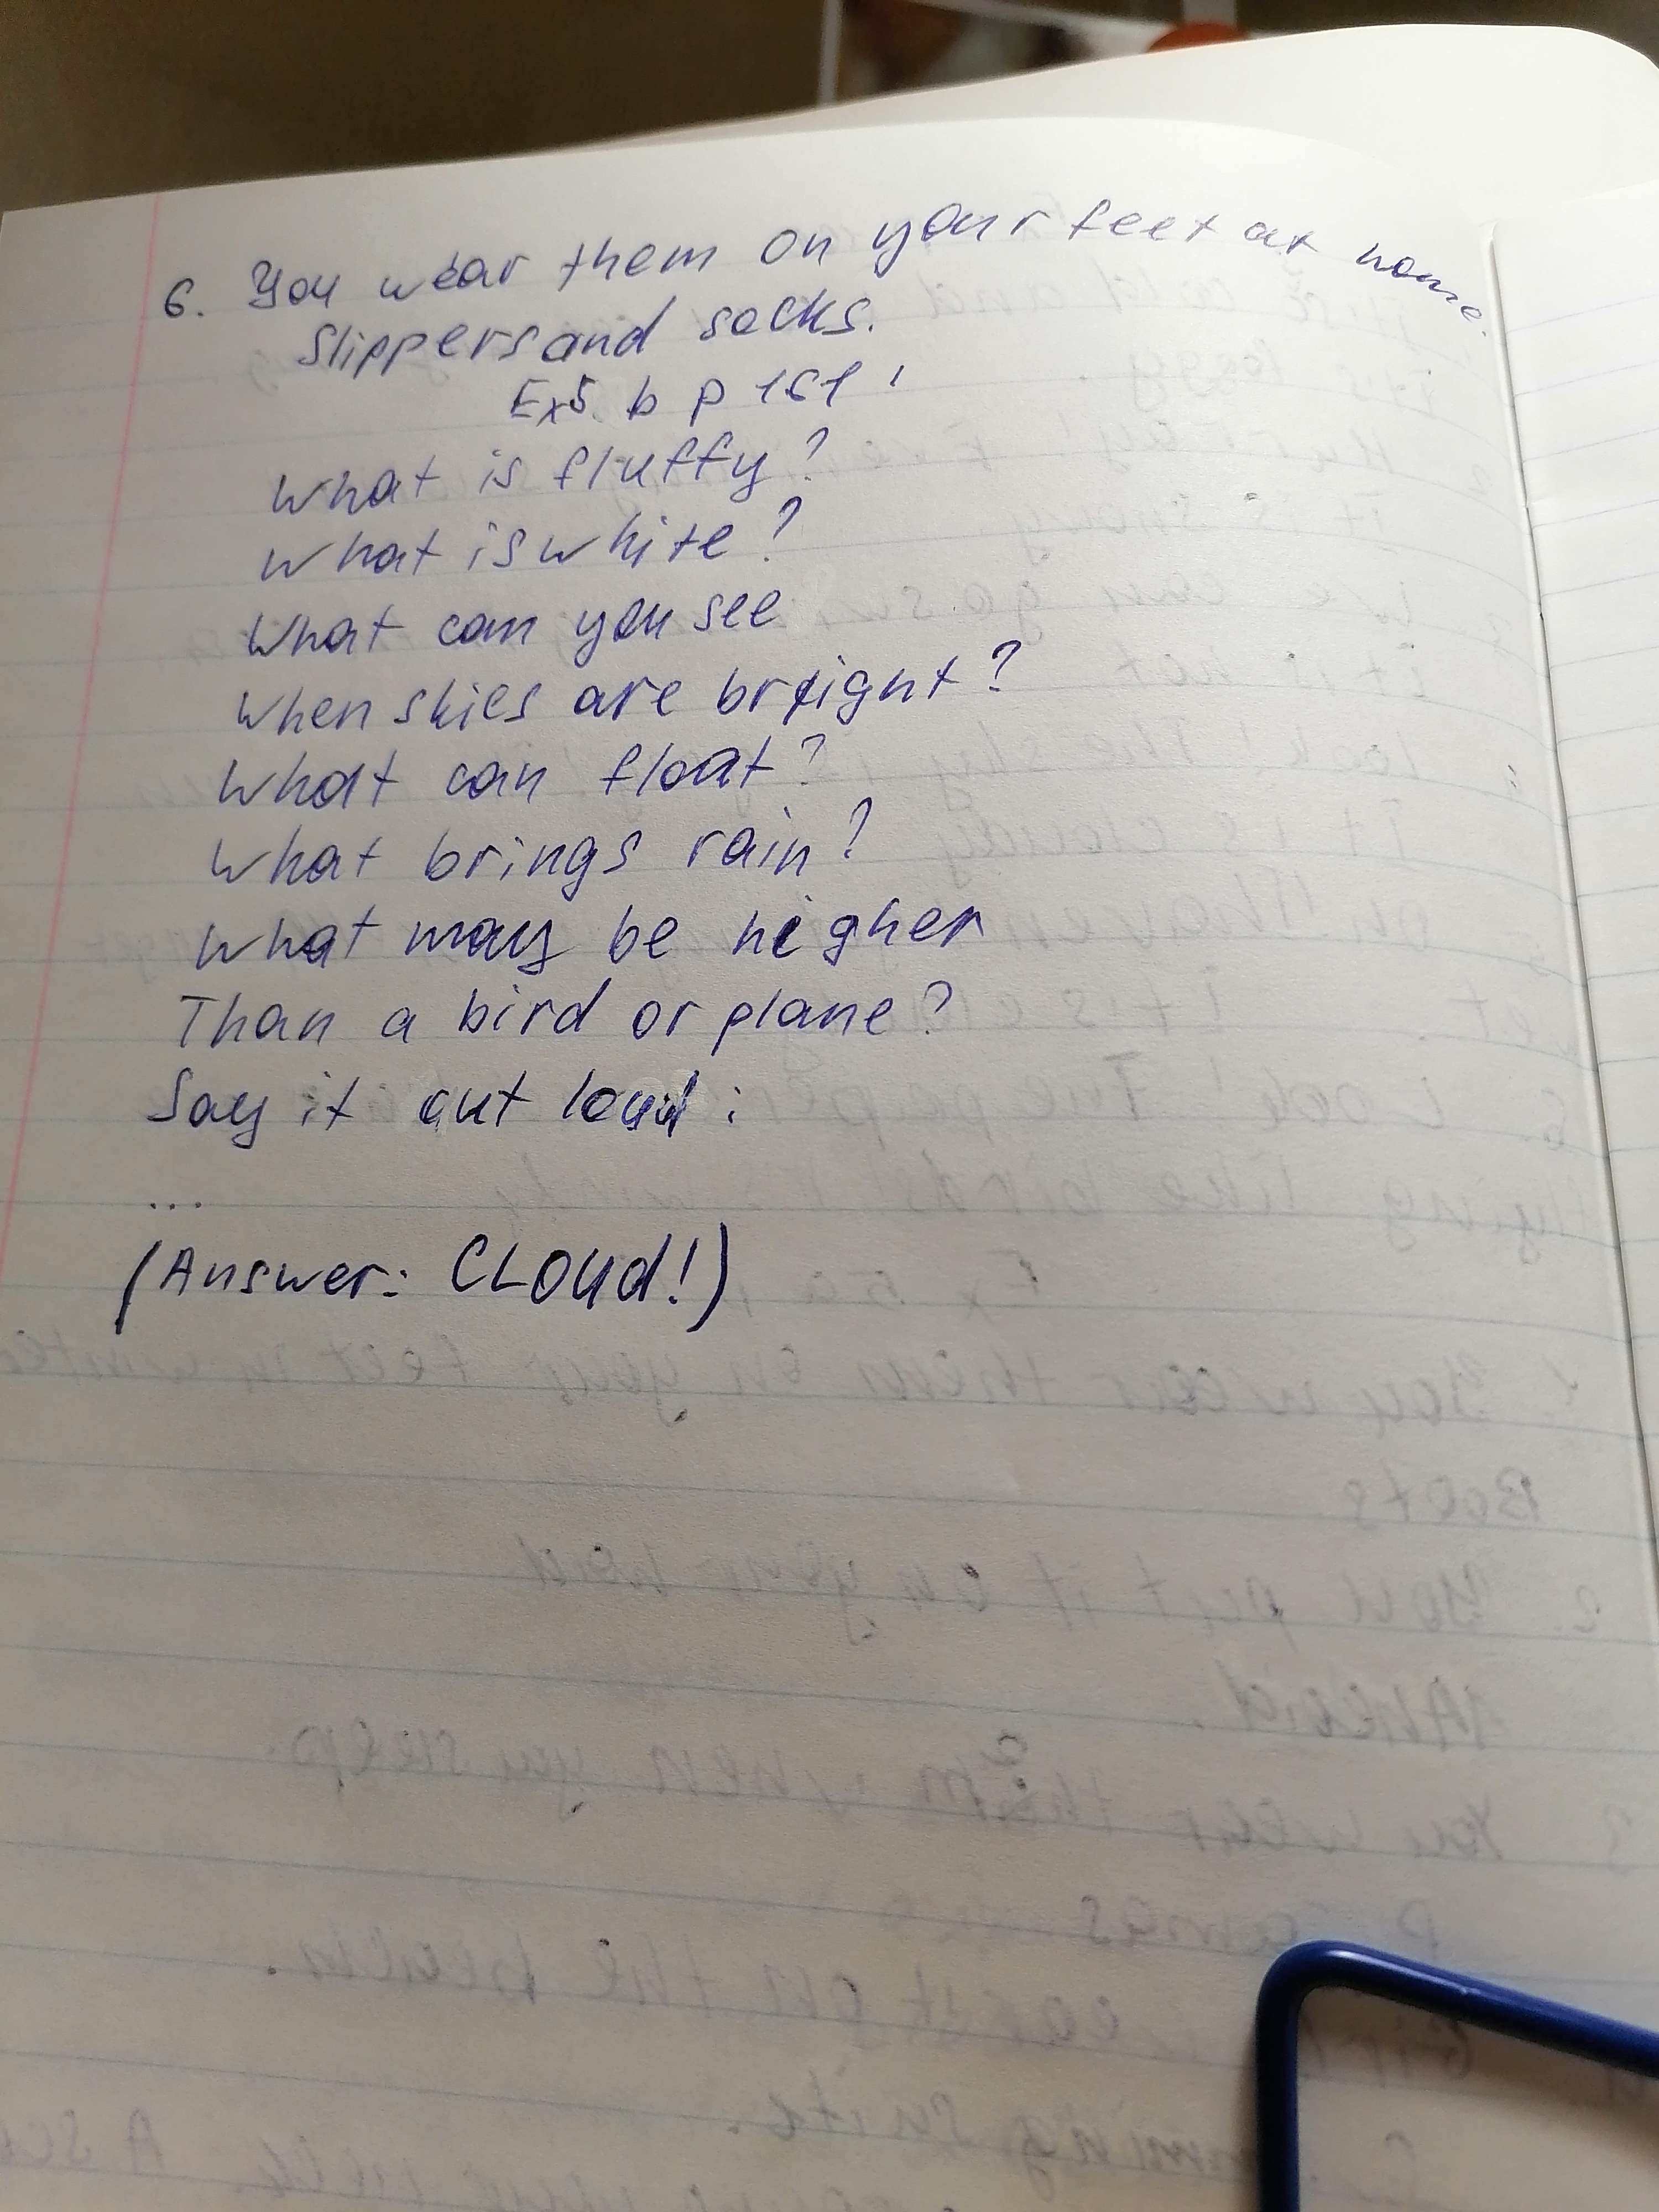 6. You wear them on your feet at home.
Slippers and socks.
Ex5. b p 161
What is fluffy?
What is white?
What can you see
When skies are bright?
What can float?
What brings rain?
What may be higher
Than a bird or plane?
Say it out loud:
...
(Answer: CLOUd!)